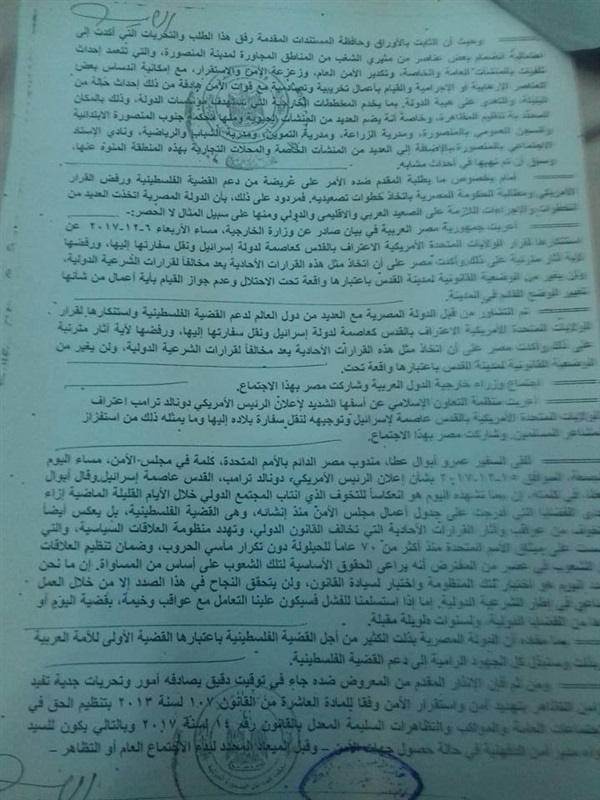 وحيث أن الثابت بالأوراق وحافظة المستندات المقدمة رفق هذا الطلب والتحريات التي أكدت إلى
احتمالية انضمام بعض عناصر من مثيري الشغب من المناطق المجاورة لمدينة المنصورة، والتي تتعمد إحداث
تلفيات بالمنشآت العامة والخاصة، وتكدير الأمن العام، وزعزعة الأمن والإستقرار، مع إمكانية اندساس بعض
العناصر الإرهابية أو الإجرامية والقيام بأعمال تخريبية وتصادمية مع قوات الأمن هادفة من ذلك إحداث حالة من
البلبلة، والتعدي على هيبة الدولة. بما يخدم المخططات الخارجية التي تستهدف مؤسسات الدولة، وذلك بالمكان
المحدد به تنظيم المظاهرة، وخاصة أنه يضم العديد من المنشآت الحيوية ومنها محكمة جنوب المنصورة الابتدائية
والسجن العمومي بالمنصورة، ومديرية الزراعة، ومديرية التموين، ومديرية الشباب والرياضية، ونادي الإستاد
الاجتماعي بالمنصورة، بالإضافة إلى العديد من المنشآت الخاصة والمحلات التجارية بهذه المنطقة المنوه عنها،
وسبق أن تم نهبها في أحداث مشابه.
أمام بخصوص ما يطلبة المقدم ضده الأمر على عريضة من دعم القضية الفلسطينية ورفض القرار
الأمريكي ومطالبة الحكومة المصرية باتخاذ خطوات تصعيديه. فمردود على ذلك، بأن الدولة المصرية اتخذت العديد من
الخطوات والإجراءات اللازمة على الصعيد العربي والاقليمي والدولي ومنها على سبيل المثال لا الحصر:-
أعربت جمهورية مصر العربية في بيان صادر عن وزارة الخارجية، مساء الأربعاء ٦-١٢-٢٠١٧ عن
استنكارها لقرار الولايات المتحدة الأمريكية الاعتراف بالقدس كعاصمة لدولة إسرائيل ونقل سفارتها إليها، ورفضها
لأية آثار مترتبة على ذلك. وأكدت مصر على أن اتخاذ مثل هذه القرارات الأحادية يعد مخالفا لقرارات الشرعية الدولية،
ولن يغير من الوضعية القانونية لمدينة القدس باعتبارها واقعة تحت الاحتلال وعدم جواز القيام باية أعمال من شأنها
تغيير الوضع القائم في المدينة.
تم التشاور من قبل الدولة المصرية مع العديد من دول العالم لدعم القضية الفلسطينية واستنكارها لقرار
الولايات المتحدة الأمريكية الاعتراف بالقدس كعاصمة لدولة إسرائيل ونقل سفارتها إليها، ورفضها لأية آثار مترتبة
على ذلك. وأكدت مصر على أن اتخاذ مثل هذه القرارات الأحادية يعد مخالفاً لقرارات الشرعية الدولية، ولن يغير من
الوضعية القانونية لمدينة القدس باعتبارها واقعة تحت.
اجتماع وزراء خارجية الدول العربية وشاركت مصر بهذا الاجتماع.
أعربت منظمة التعاون الإسلامي عن أسفها الشديد لإعلان الرئيس الأمريكي دونالد ترامب اعتراف
الولايات المتحدة الأمريكية بالقدس عاصمة لإسرائيل وتوجيهه لنقل سفارة بلاده إليها وما يمثله ذلك من استفزاز
لمشاعر المسلمين. وشاركت مصر بهذا الاجتماع.
القى السفير عمرو أبوال عطا، مندوب مصر الدائم بالأمم المتحدة، كلمة في مجلس الأمن، مساء اليوم
الجمعة، الموافق ١٥-١٢-٢٠١٧ بشأن إعلان الرئيس الأمريكي، دونالد ترامب، القدس عاصمة إسرائيل. وقال أبوال
عطا في كلمته، إن ربما نشهده اليوم هو انعكاساً للتخوف الذي انتاب المجتمع الدولي خلال الأيام القليلة الماضية إزاء
القضايا التي أدرجت على جدول أعمال مجلس الأمن منذ إنشائه، وهى القضية الفلسطينية، بل يعكس أيضاً
من عواقب وآثار القرارات الأحادية التي تخالف القانون الدولي، وتهدد منظومة العلاقات السياسية، والتي
على ميثاق الأمم المتحدة منذ أكثر من ٧٠ عاماً للحيلولة دون تكرار مآسي الحروب، وضمان تنظيم العلاقات
الشعوب في عصر من المفترض أنه يراعى الحقوق الأساسية لتلك الشعوب على أساس من المساواة. إن ما نحن
اليوم هو اختبار لتلك المنظومة واختبار لسيادة القانون، ولن يتحقق النجاح في هذا الصدد إلا من خلال العمل
في إطار الشرعية الدولية. إما إذا استسلمنا للفشل فسيكون علينا التعامل مع عواقب وخيمة، بقضية اليوم أو
من القضايا الدولية، ولسنوات طويلة مقبلة.
مما مفاده أن الدولة المصرية بذلت الكثير من أجل القضية الفلسطينية باعتبارها القضية الأولى للأمة العربية
بذلت وستبذل كل الجهود الرامية إلى دعم القضية الفلسطينية.
ومن ثم فان الانذار المقدم من المعروض ضده جاء في توقيت دقيق يصادفه أمور وتحريات جدية تفيد
التظاهر تهديد أمن واستقرار الأمن وفقا للمادة العاشرة من القانون ١٠٧ لسنة ٢٠١٣ بتنظيم الحق في
الاجتماعات العامة والمواكب والتظاهرات السليمة المعدل بالقانون رقم ١٤ لسنة ٢٠١٧ وبالتالي يكون للسيد
مدير أمن الدقهلية في حالة حصول جهات الأمن - وقبل الميعاد المحدد لبدء الاجتماع العام أو التظاهر -